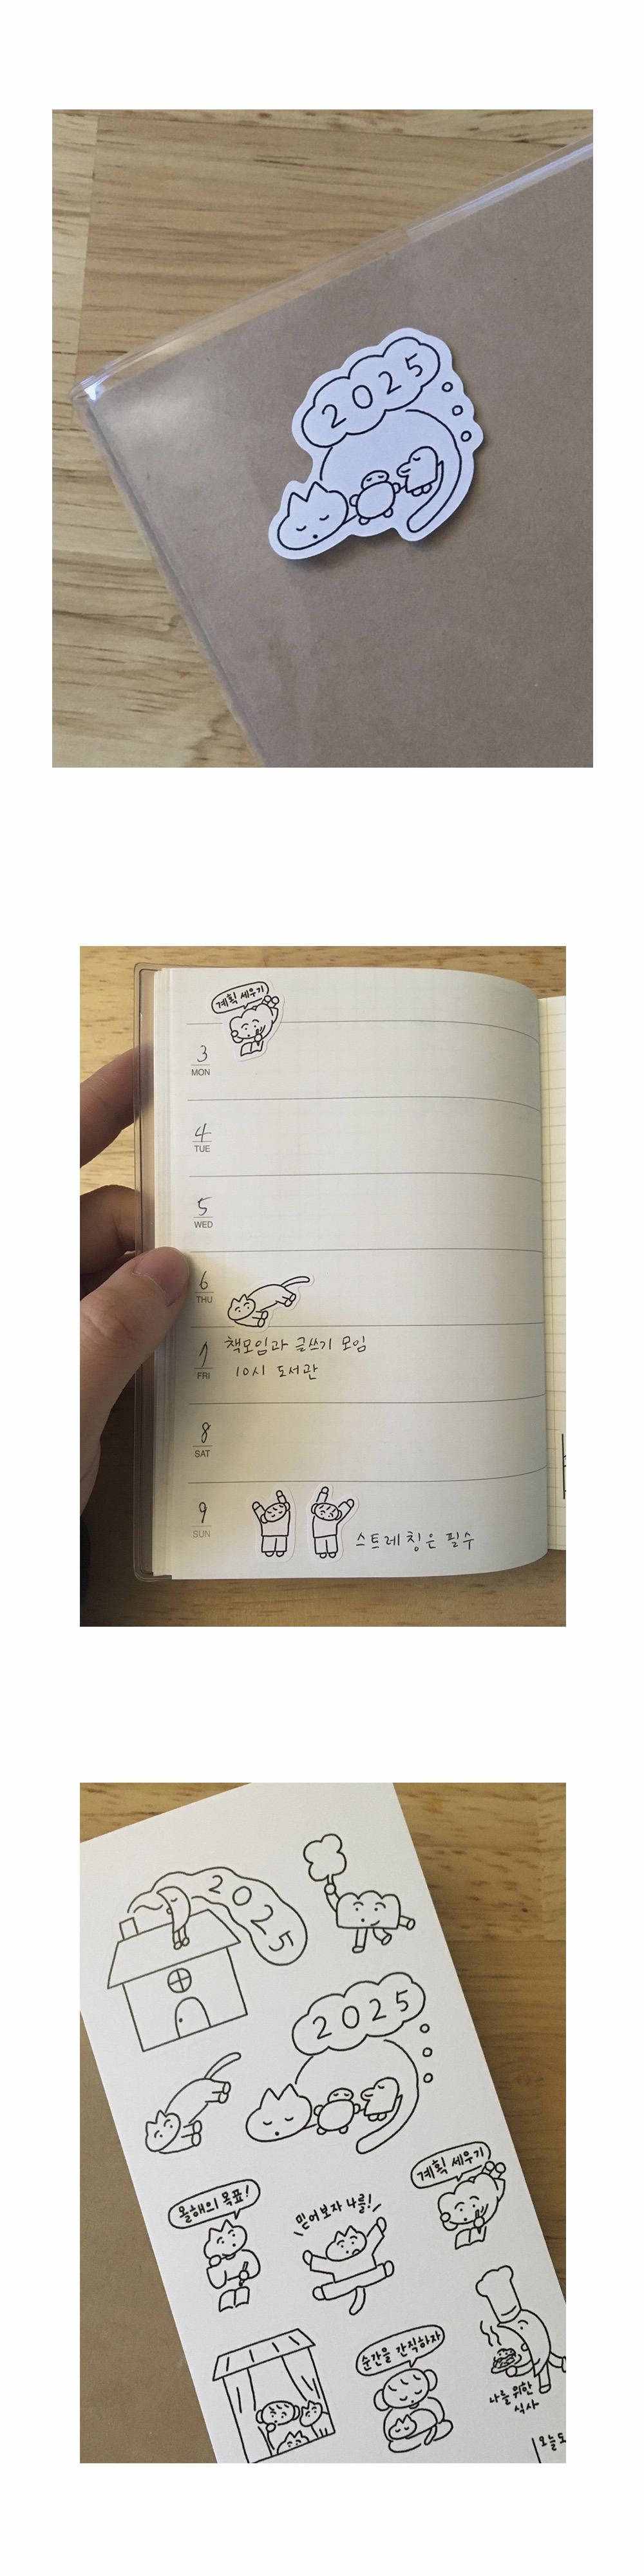 2025
계획 세우기
3
MON
4
TUE
5
WED
6
THU
7
FRI
책모임과 글쓰기 모임
10시 도서관
8
SAT
9
SUN
스트레칭은 필수
2025
2025
계획 세우기
올해의 목표!
믿어보자 나를!
순간을 간직하자
나를 위한
식사
오늘도